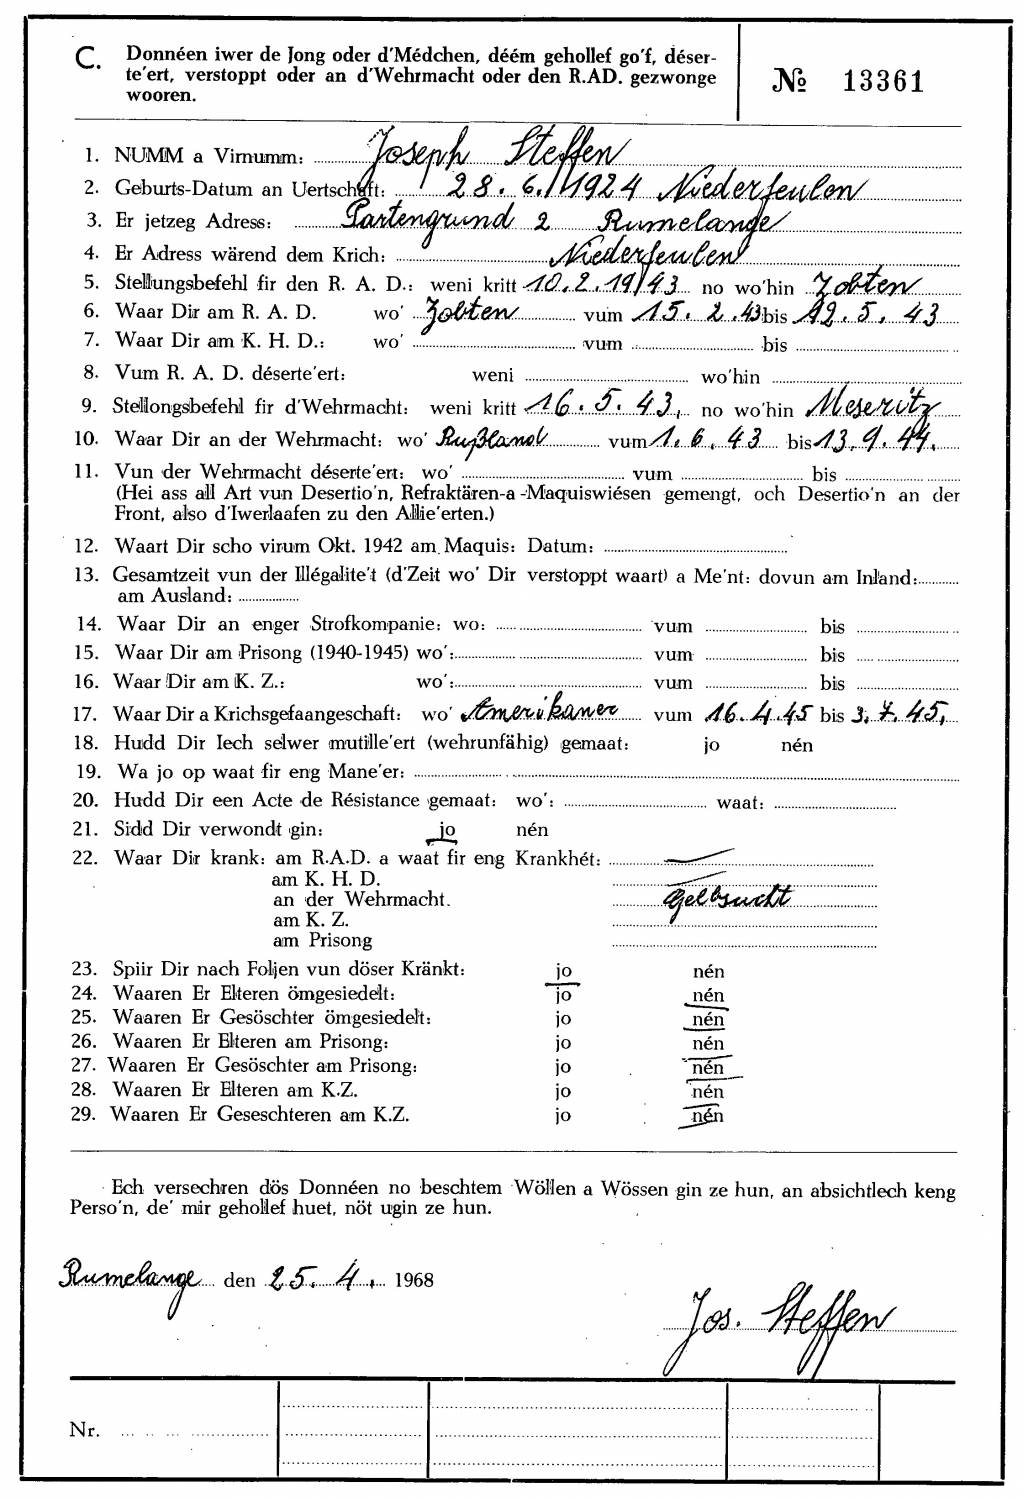 C. Donnéen iwer de Jong oder d'Médchen, déém gehollef go'f, déser-
te'ert, verstoppt oder an d'Wehrmacht oder den R.AD. gezwonge
wooren.
№ 13361
1. NUMM a Virnumm: Joseph Steffen
2. Geburts-Datum an Uertschaft: 28.6.1924 Niederfeulen
3. Er jetzeg Adress: Gartengrund 2 Rumelange
4. Er Adress wärend dem Krich: Niederfeulen
5. Stellungsbefehl fir den R. A. D.: weni kritt 10.2.1943 no wo'hin Zobten
6. Waar Dir am R. A. D. wo' Zobten vum 15.2.43 bis 12.5.43
7. Waar Dir am K. H. D.: wo' vum bis
8. Vum R. A. D. déserte'ert: weni wo'hin
9. Stellongsbefehl fir d'Wehrmacht: weni kritt 16.5.43, no wo'hin Meseritz
10. Waar Dir an der Wehrmacht: wo' Rußland vum 1.6.43 bis 13.9.44.
11. Vun der Wehrmacht déserte'ert: wo' vum bis
(Hei ass all Art vun Desertio'n, Refraktären-a -Maquiswiésen gemengt, och Desertio'n an der
Front, also d'Iwerlaafen zu den Allie'erten.)
12. Waart Dir scho virum Okt. 1942 am Maquis: Datum:
13. Gesamtzeit vun der Illégalite't (d'Zeit wo' Dir verstoppt waart) a Me'nt: dovun am Inland:
am Ausland:
14. Waar Dir an enger Strofkompanie: wo: vum bis
15. Waar Dir am Prisong (1940-1945) wo': vum bis
16. Waar Dir am K. Z.: wo': vum bis
17. Waar Dir a Krichsgefaangeschaft: wo' Amerikaner vum 16.4.45 bis 3.7.45,
18. Hudd Dir Iech selwer mutille'ert (wehrunfähig) gemaat: jo nén
19. Wa jo op waat fir eng Mane'er:
20. Hudd Dir een Acte de Résistance gemaat: wo': waat:
21. Sidd Dir verwondt gin: jo nén
22. Waar Dir krank: am R.A.D. a waat fir eng Krankhét:
am K. H. D.
an der Wehrmacht. Gelbsucht
am K. Z.
am Prisong
23. Spiir Dir nach Foljen vun döser Kränkt: jo nén
24. Waaren Er Elteren ömgesiedelt: jo nén
25. Waaren Er Gesöschter ömgesiedelt: jo nén
26. Waaren Er Elteren am Prisong: jo nén
27. Waaren Er Gesöschter am Prisong: jo nén
28. Waaren Er Elteren am K.Z. jo nén
29. Waaren Er Geseschteren am K.Z. jo nén
Ech versechren dös Donnéen no beschtem Wöllen a Wössen gin ze hun, an absichtlech keng
Perso'n, de' mir gehollef huet, nöt ugin ze hun.
Rumelange den 25.4. 1968
Jos. Steffen
Nr.